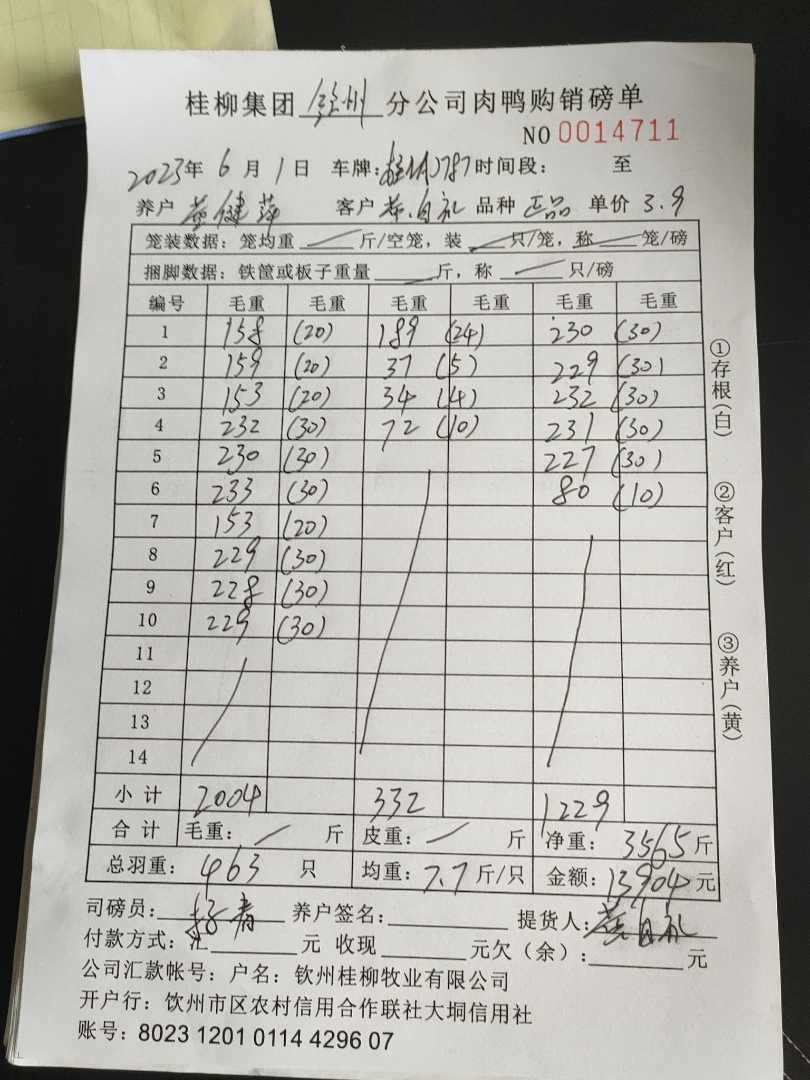 桂柳集团 钦州 分公司肉鸭购销磅单
NO 0014711
2023年 6 月 1 日 车牌: 787 时间段: 至
养户 黄健萍 客户 自礼 品种 正品 单价 3.9
笼装数据: 笼均重 斤/空笼, 装 只/笼, 称 笼/磅
捆脚数据: 铁筐或板子重量 斤, 称 只/磅
编号 毛重 毛重 毛重 毛重 毛重 毛重
1 158 (20) 189 (24) 230 (30)
2 159 (20) 37 (5) 229 (30)
3 153 (20) 34 (4) 232 (30)
4 232 (30) 72 (10) 231 (30)
5 230 (30) 227 (30)
6 233 (30) 80 (10)
7 153 (20)
8 229 (30)
9 228 (30)
10 229 (30)
11
12
13
14
小计 2004 332 1229
合计 毛重: 斤 皮重: 斤 净重: 3565 斤
总羽重: 463 只 均重: 7.7 斤/只 金额: 13904 元
司磅员: 养户签名: 提货人: 自礼
付款方式: 汇 元 收现 元欠(余): 元
公司汇款帐号: 户名: 钦州桂柳牧业有限公司
开户行: 饮州市区农村信用合作联社大垌信用社
账号: 8023 1201 0114 4296 07
①存根(白)
②客户(红)
③养户(黄)